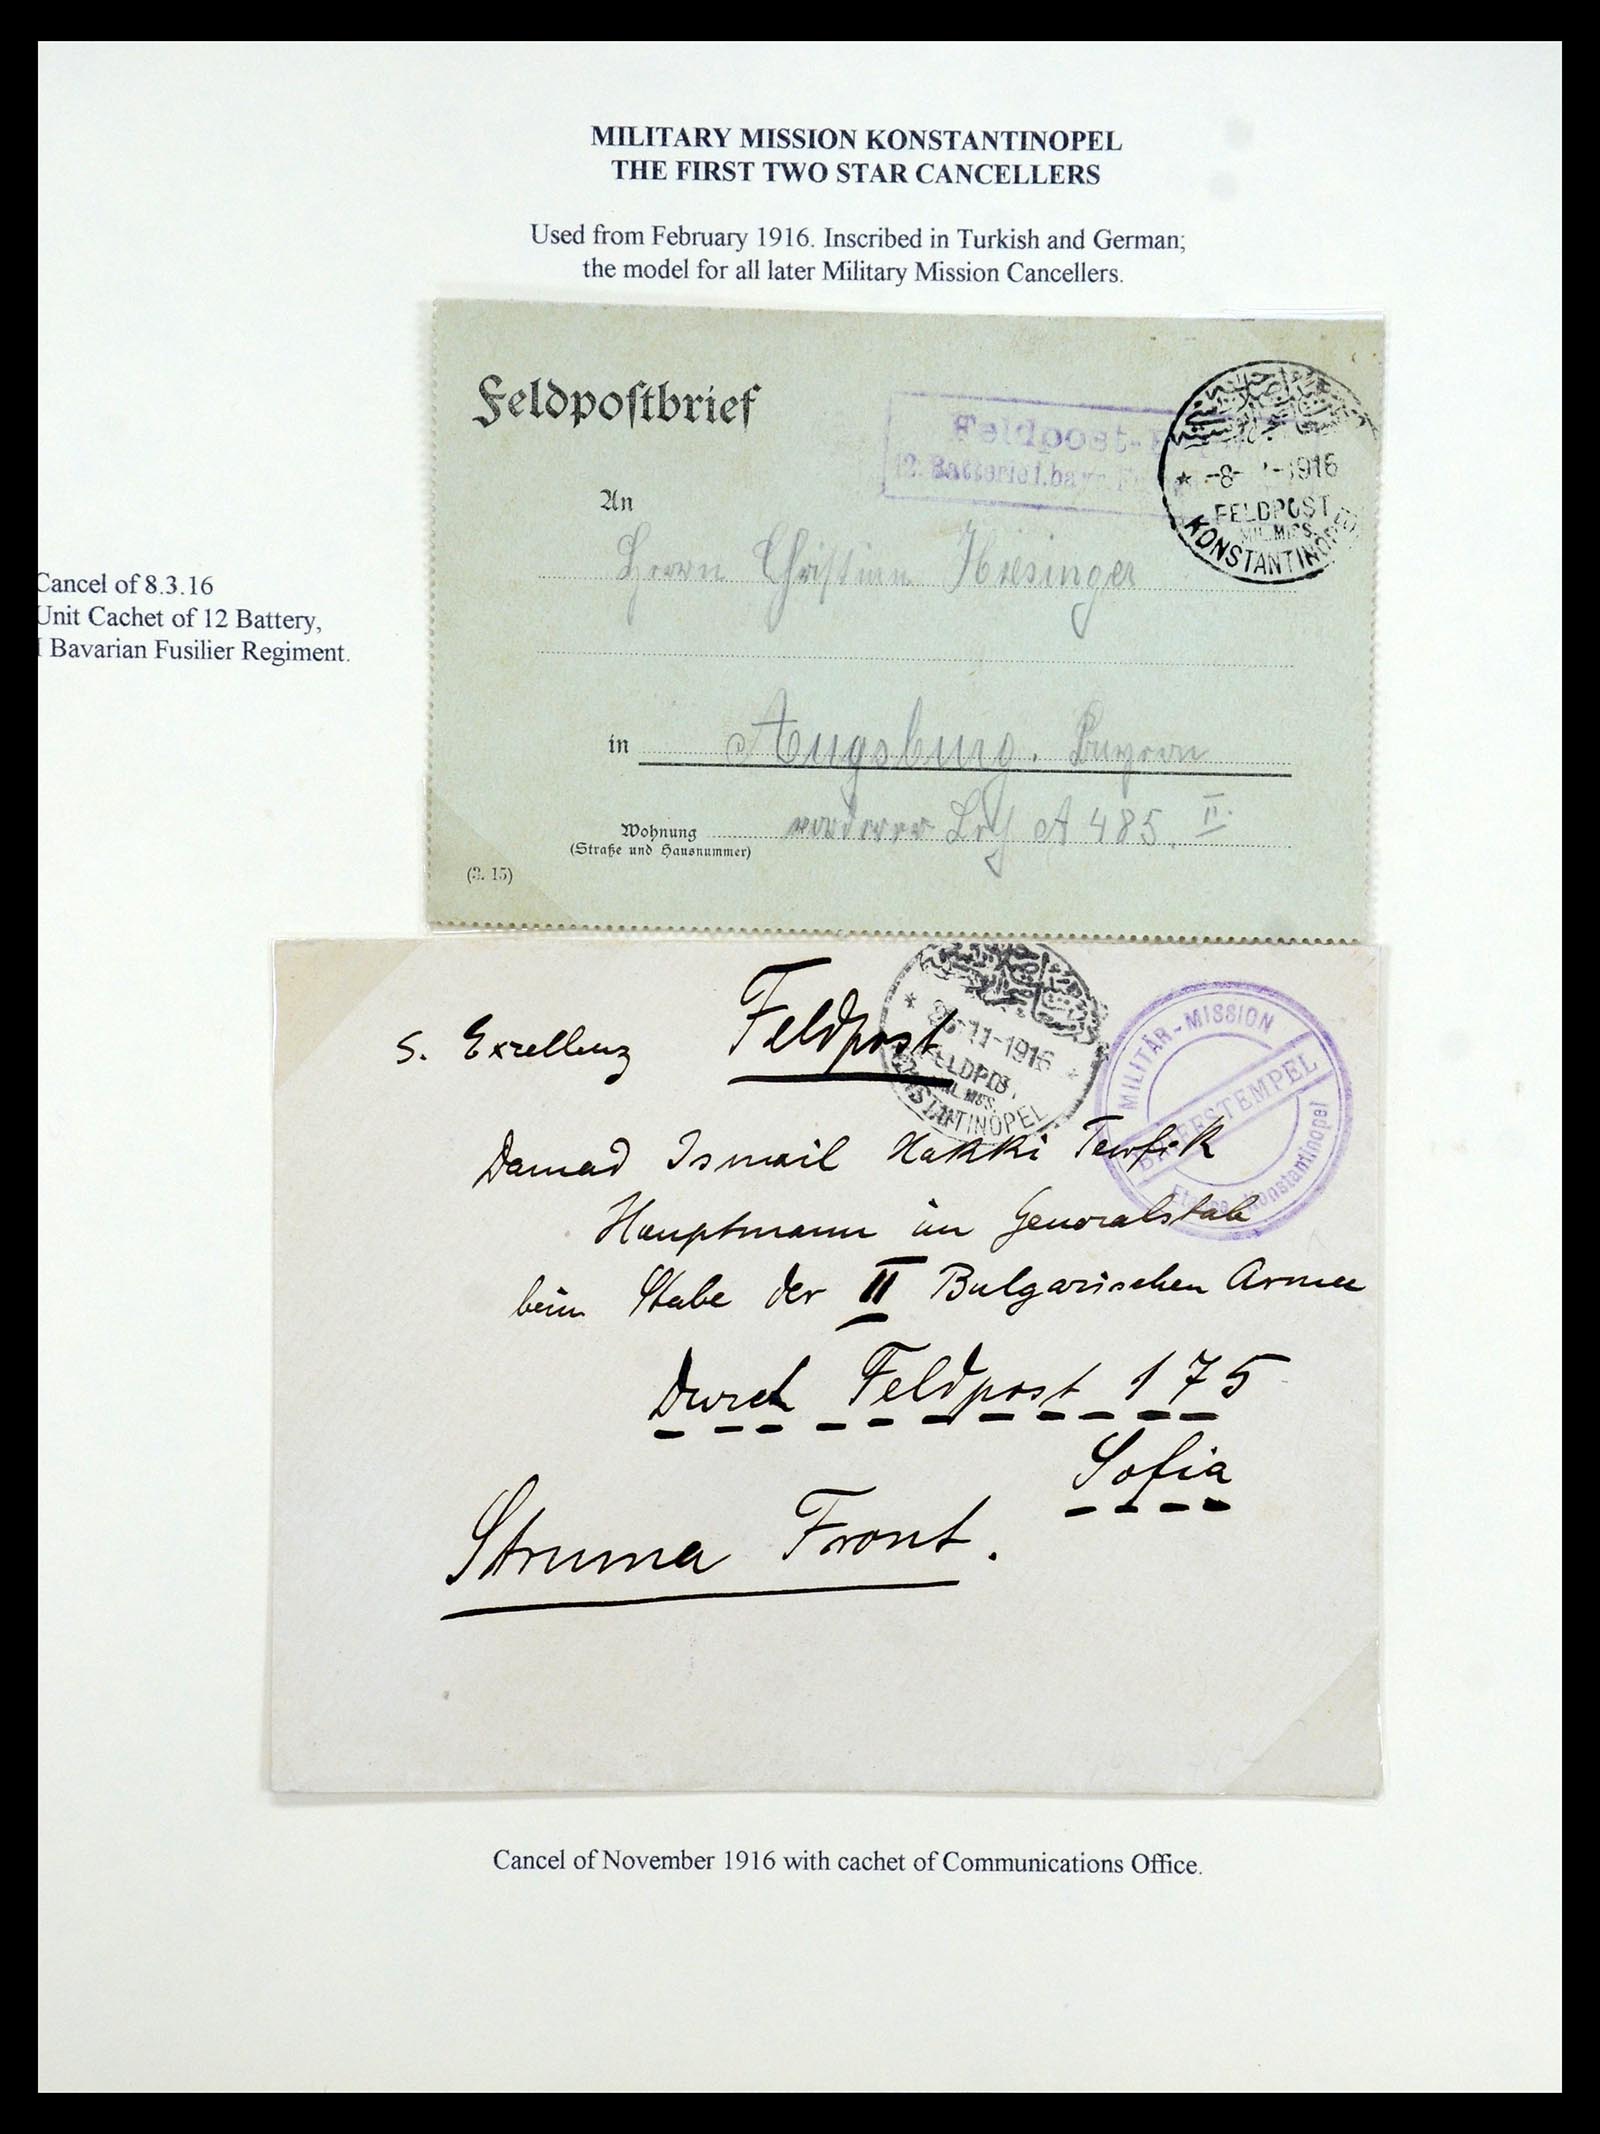 MILITARY MISSION KONSTANTINOPEL
THE FIRST TWO STAR CANCELLERS
Used from February 1916. Inscribed in Turkish and German;
the model for all later Military Mission Cancellers.
Feldpostbrief
Feldpost-
12. Batterie
-1916
FELDPOST
MIL.MISS.
KONSTANTINOPEL
An
Herrn Christian Hiesinger
in Augsburg. Bayern
Wohnung
(Straße und Hausnummer)
A 485 II.
(3. 15)
Cancel of 8.3.16
Unit Cachet of 12 Battery,
I Bavarian Fusilier Regiment.
11-1916
FELDPOS
MIL.MISS.
STANTINOPEL
MILITÄR-MISSION
BRIEFSTEMPEL
Konstantinopel
S. Exzellenz Feldpost
Damad Ismail Hakki Tewfik
Hauptmann im Generalstab
beim Stabe der II Bulgarischen Armee
Durch Feldpost 175
Sofia
Struma Front.
Cancel of November 1916 with cachet of Communications Office.